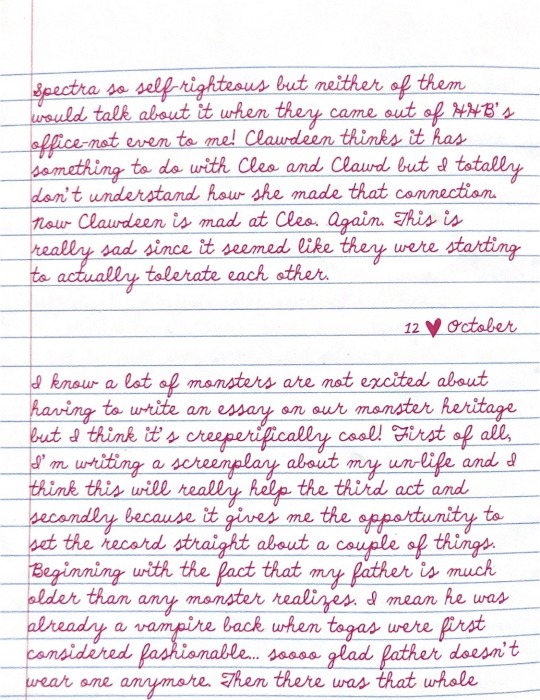 Spectra so self-righteous but neither of them
would talk about it when they came out of HHB's
office-not even to me! Clawdeen thinks it has
something to do with Cleo and Clawd but I totally
don't understand how she made that connection.
Now Clawdeen is mad at Cleo. Again. This is
really sad since it seemed like they were starting
to actually tolerate each other.
12 ♥ October
I know a lot of monsters are not excited about
having to write an essay on our monster heritage
but I think it's creeperifically cool! First of all,
I'm writing a screenplay about my un-life and I
think this will really help the third act and
secondly because it gives me the opportunity to
set the record straight about a couple of things.
Beginning with the fact that my father is much
older than any monster realizes. I mean he was
already a vampire back when togas were first
considered fashionable... soooo glad father doesn't
wear one anymore. Then there was that whole